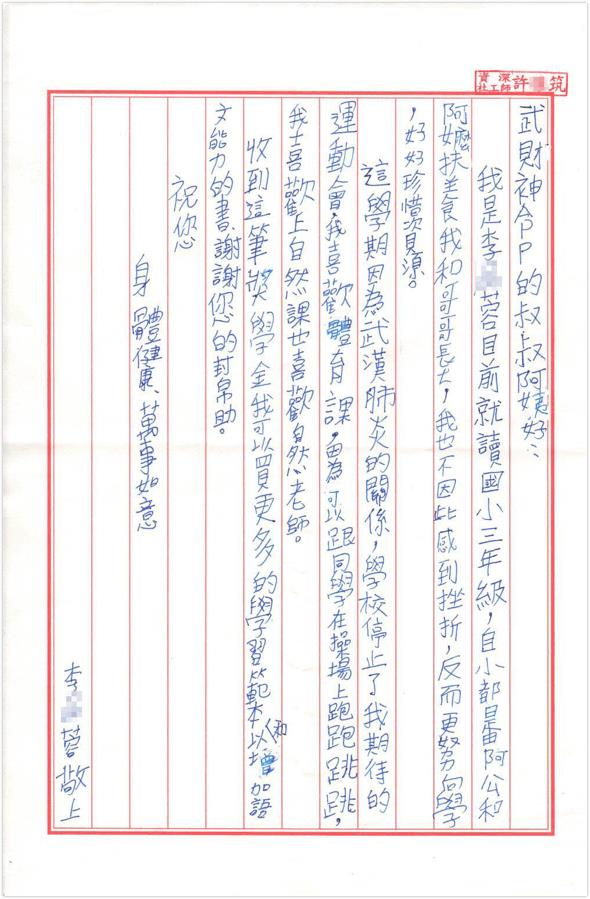 資深社工師許筑
武財神APP的叔叔阿姨好：
我是李蓉目前就讀國小三年級，自小都是阿公和
阿嬤扶養我和哥哥長大，我也不因此感到挫折，反而更努向學
，好好珍惜資源。
這學期因為武漢肺炎的關係，學校停止了我期待的
運動會，我喜歡體育課，因為可以跟同學在操場上跑跑跳跳，
我喜歡上自然課也喜歡自然老師。
收到這筆獎學金我可以買更多的學習範本以和增加語
文能力的書、謝謝您的幫助。
祝您
身體健康、萬事如意
李蓉敬上